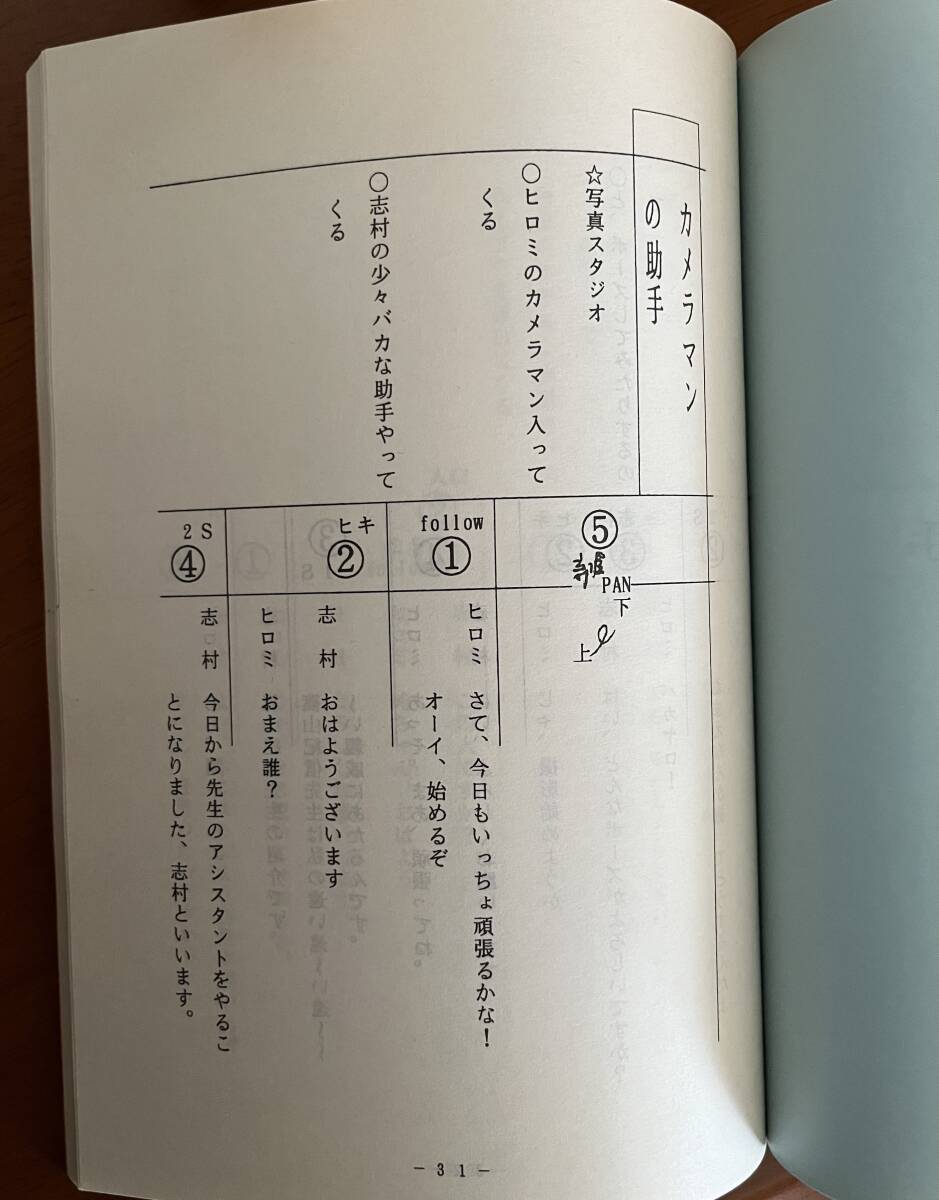 カメラマン
の助手
☆写真スタジオ
○ヒロミのカメラマン入って
くる
○志村の少々バカな助手やって
くる
⑤
PAN
下
上
follow
①
ヒキ
②
2S
④
ヒロミ さて、今日もいっちょ頑張るかな！
オーイ、始めるぞ
志村 おはようございます
ヒロミ おまえ誰？
志村 今日から先生のアシスタントをやるこ
とになりました、志村といいます。
－31－